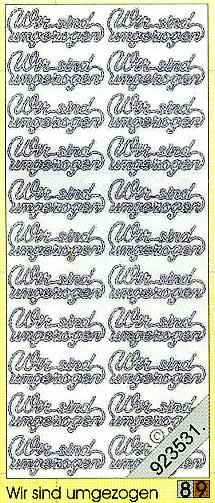 Wir sind Wir sind
umgezogen umgezogen
Wir sind Wir sind
umgezogen umgezogen
Wir sind Wir sind
umgezogen umgezogen
Wir sind Wir sind
umgezogen umgezogen
Wir sind Wir sind
umgezogen umgezogen
Wir sind Wir sind
umgezogen umgezogen
Wir sind Wir sind
umgezogen umgezogen
Wir sind Wir sind
umgezogen umgezogen
Wir sind Wir sind
umgezogen umgezogen
Wir sind Wir sind
umgezogen umgezogen
Wir sind Wir sind
umgezogen umgezogen
© 923531.
Wir sind umgezogen 89